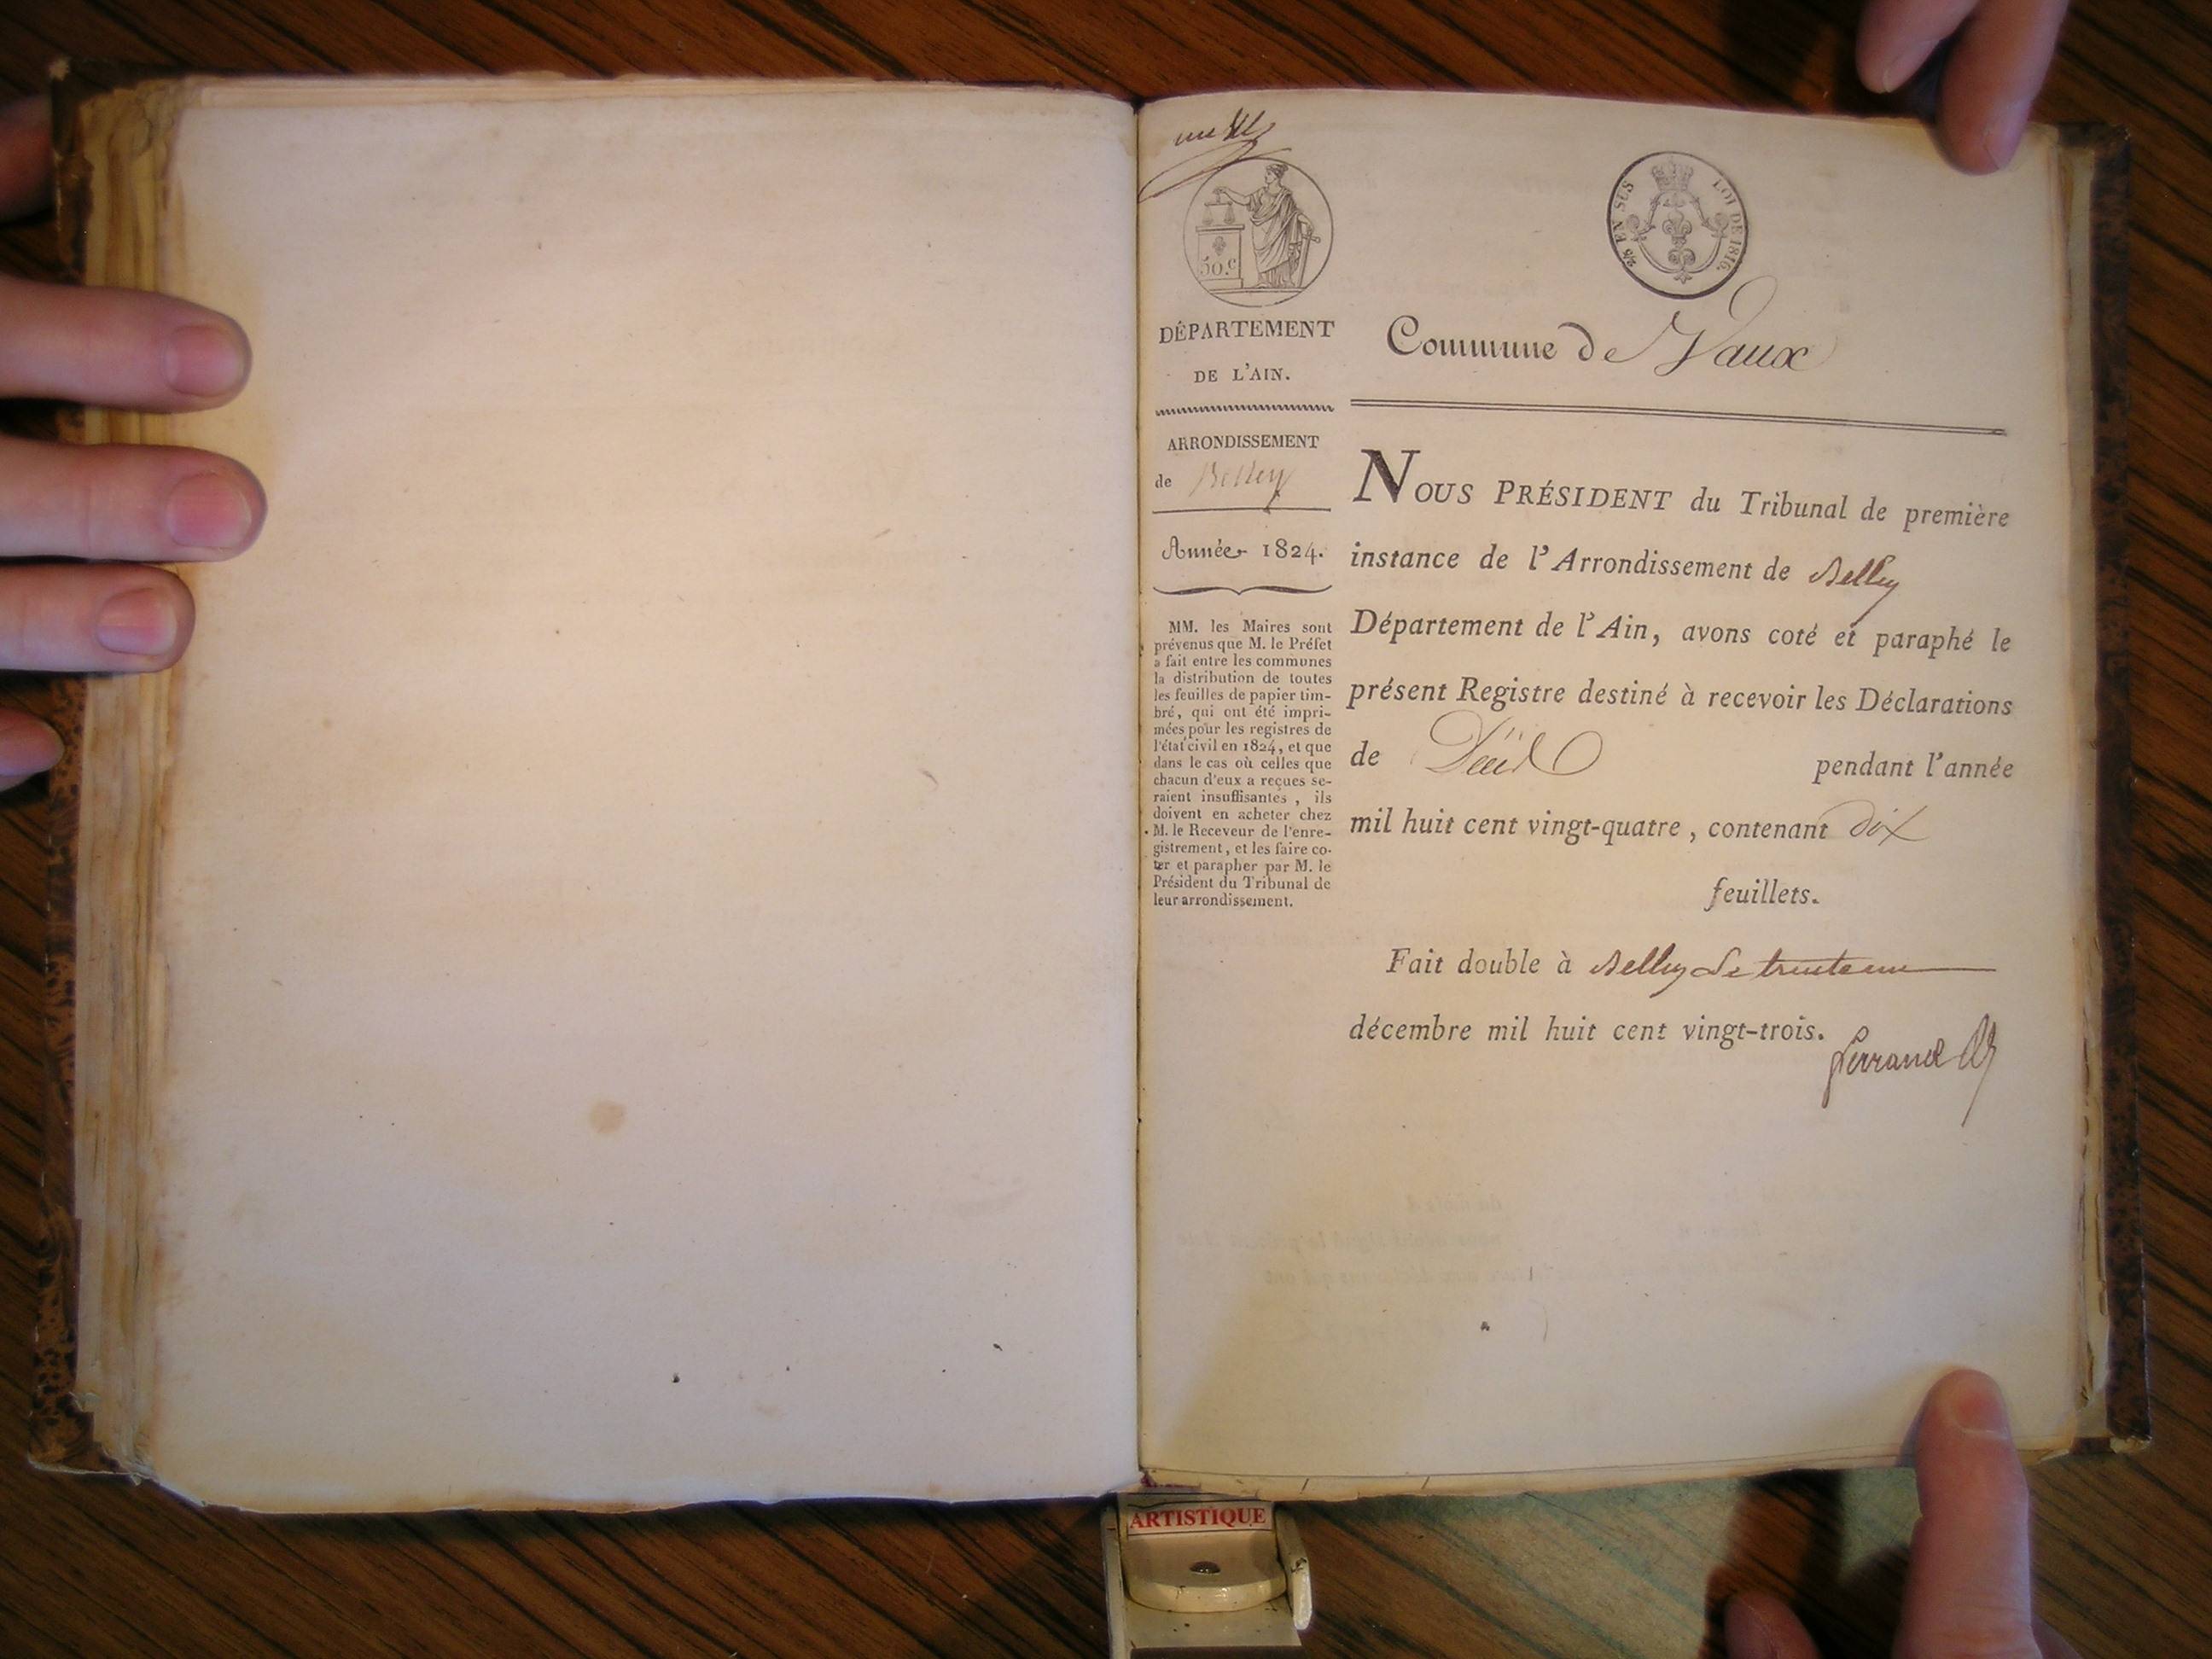 50.c
EN SUS
LOI DE 1816.
DÉPARTEMENT
DE L'AIN.
ARRONDISSEMENT
de Belley
Année 1824.
MM. les Maires sont
prévenus que M. le Préfet
a fait entre les communes
la distribution de toutes
les feuilles de papier tim-
bré, qui ont été impri-
mées pour les registres de
l'état civil en 1824, et que
dans le cas où celles que
chacun d'eux a reçues se-
raient insuffisantes, ils
doivent en acheter chez
M. le Receveur de l'enre-
gistrement, et les faire co-
ter et parapher par M. le
Président du Tribunal de
leur arrondissement.
Commune de Vaux
NOUS PRÉSIDENT du Tribunal de première
instance de l'Arrondissement de Belley
Département de l'Ain, avons coté et paraphé le
présent Registre destiné à recevoir les Déclarations
de pendant l'année
mil huit cent vingt-quatre, contenant dix
feuillets.
Fait double à Belley Le trente un
décembre mil huit cent vingt-trois.
ARTISTIQUE